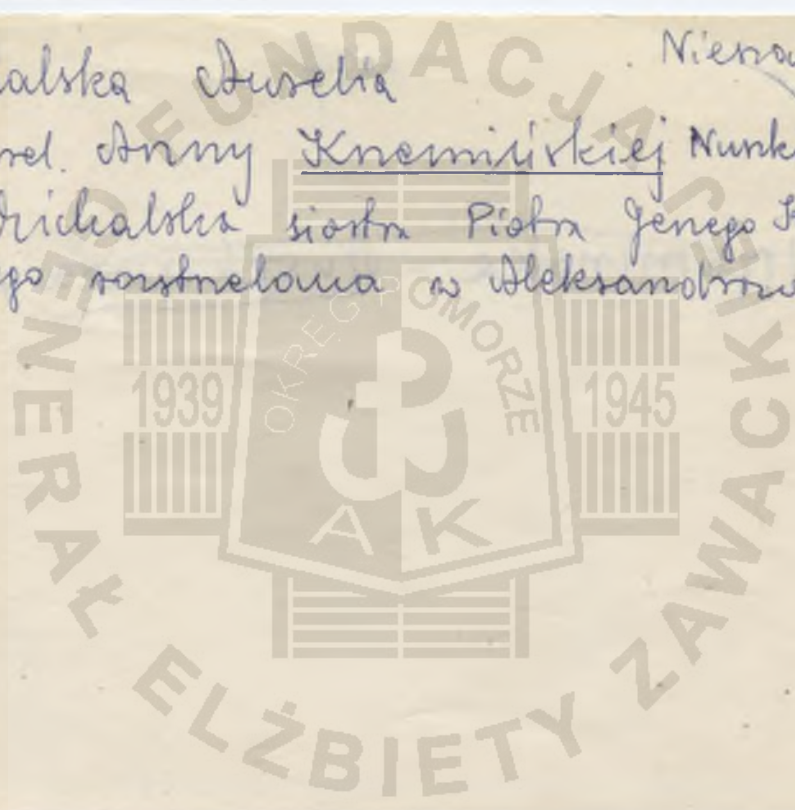 alska Aurelia Niesza
rel. Anny Krzemińskiej Nunk
drichalska siostra Piotra Jerzego K
go rozstrzelana w Aleksandrow
FUNDACJA GENERAŁ ELŻBIETY ZAWACKIEJ
OKRĘG POMORZE
1939 1945
AK